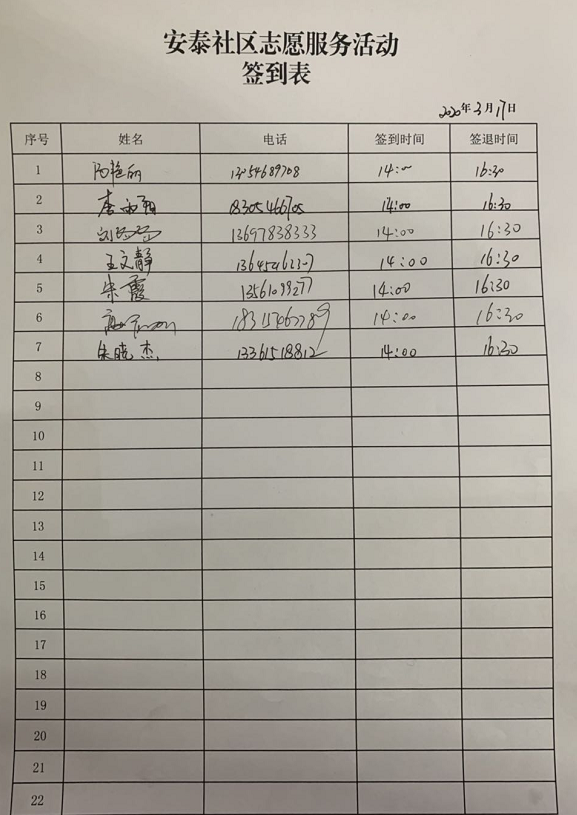 安泰社区志愿服务活动
签到表
2020年3月17日
序号 姓名 电话 签到时间 签退时间
1 14:00 16:30
2 18305466705 14:00 16:30
3 13697838333 14:00 16:30
4 王文静 14:00 16:30
5 朱霞 13561099277 14:00 16:30
6 14:00 16:30
7 朱晓杰 13361518812 14:00 16:30
8
9
10
11
12
13
14
15
16
17
18
19
20
21
22